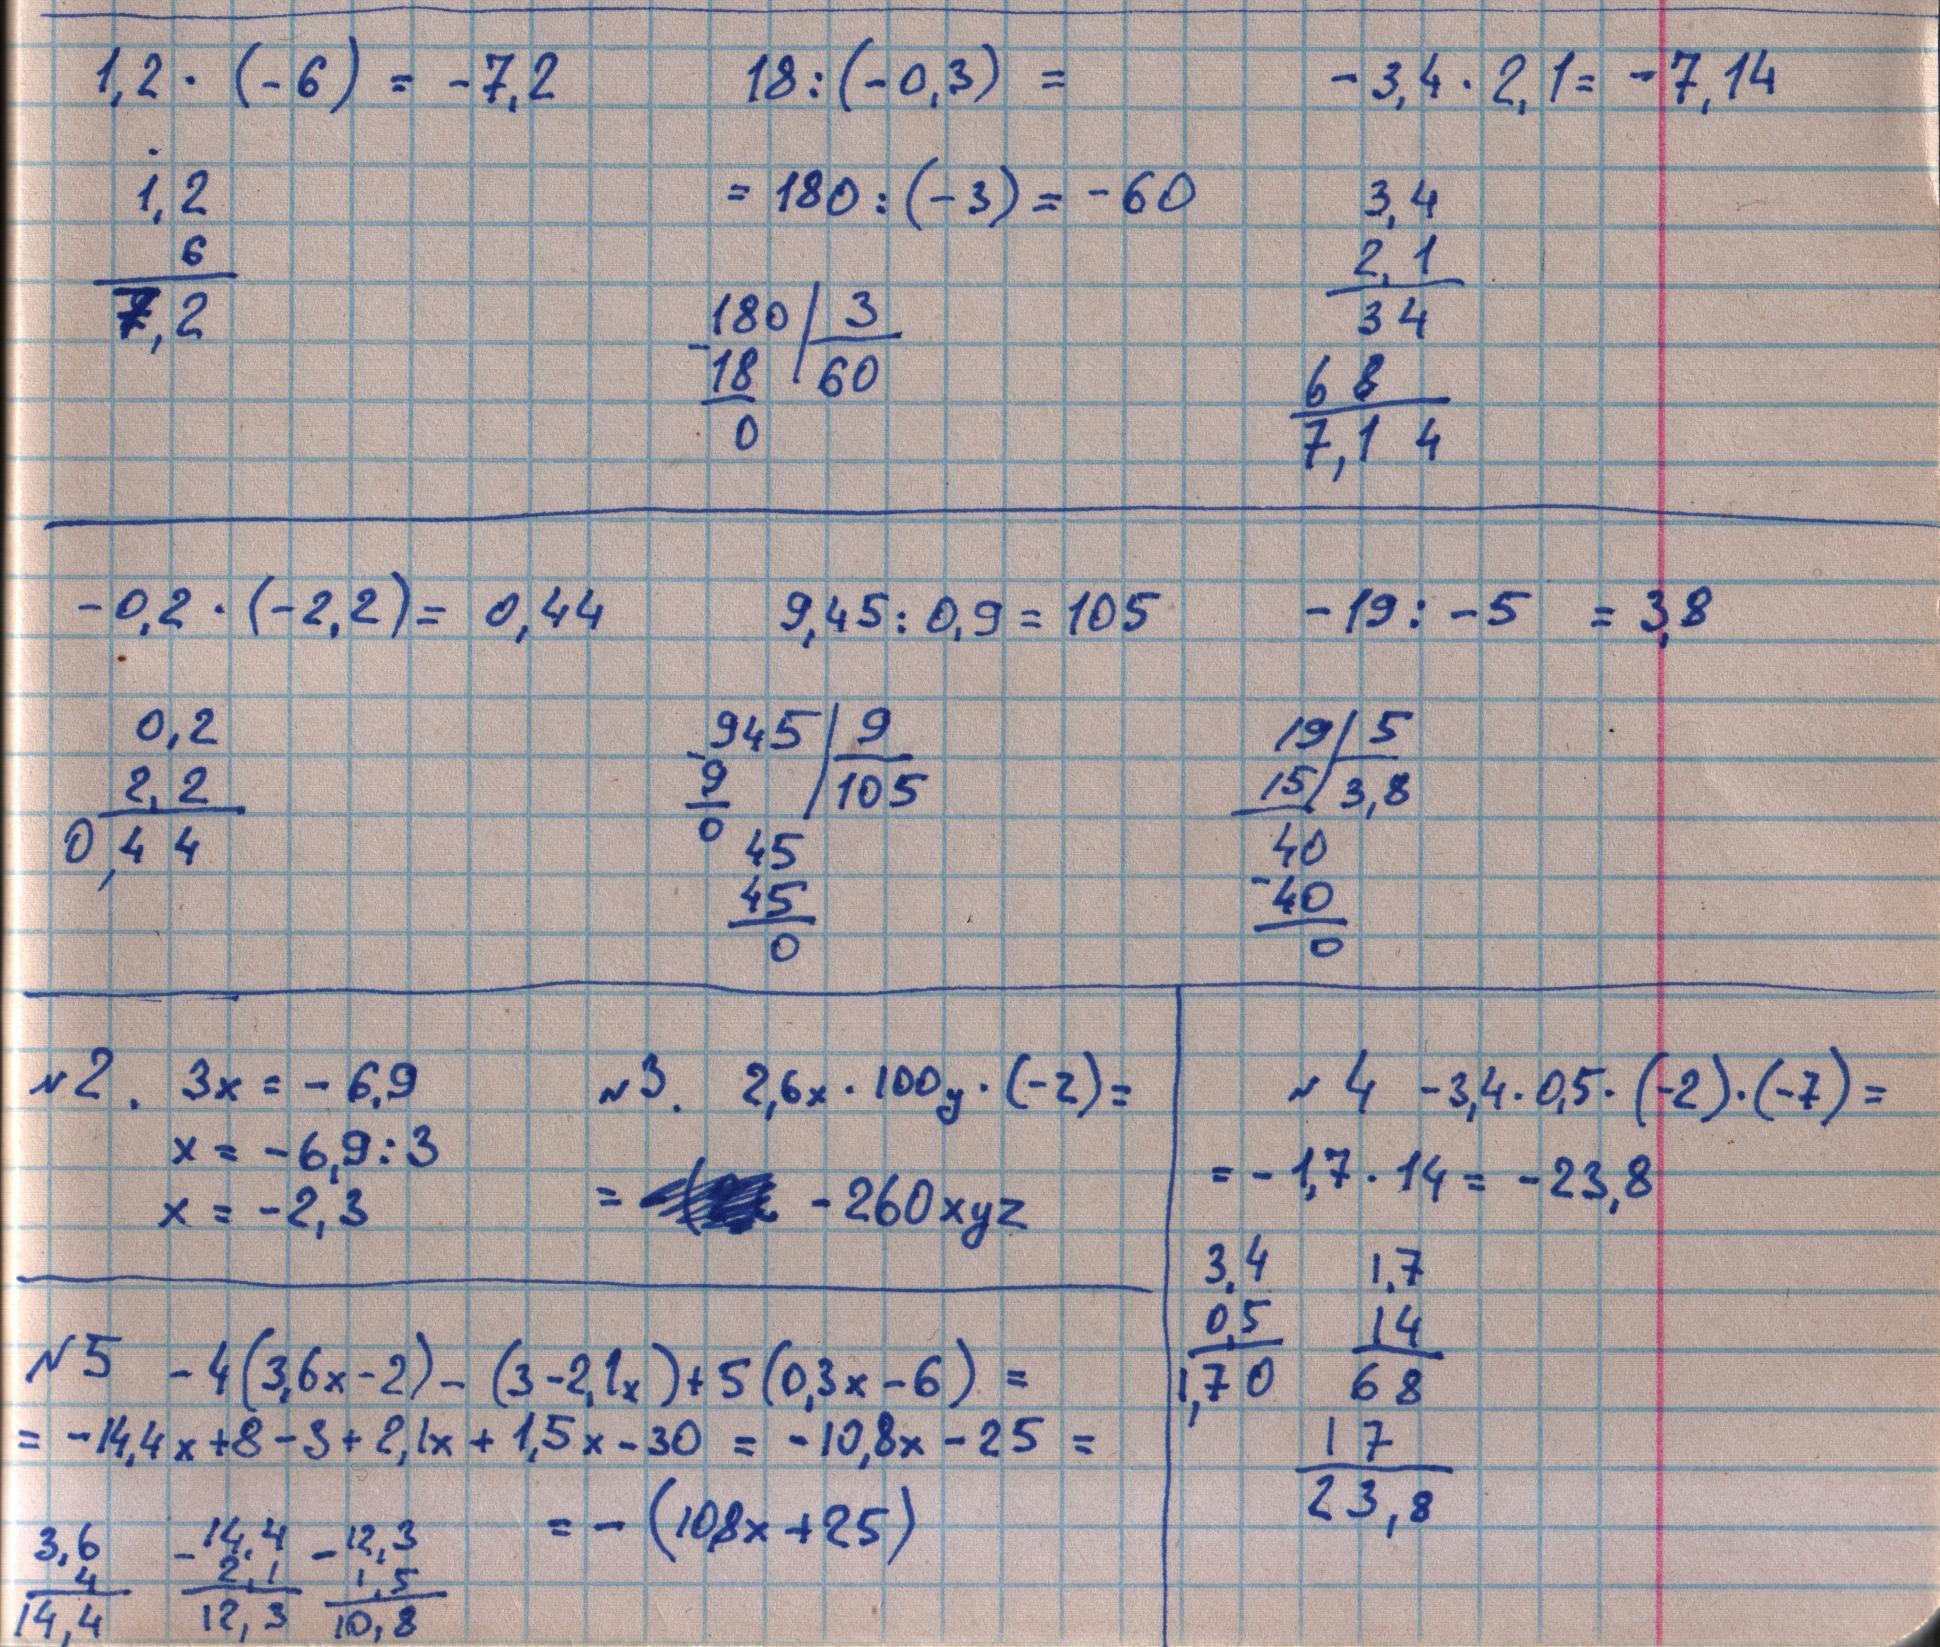 1,2 · (-6) = -7,2
1,2
6
7,2
18 : (-0,3) =
= 180 : (-3) = -60
- 180 | 3
18 | 60
0
-3,4 · 2,1 = -7,14
3,4
2,1
34
68
7,14
-0,2 · (-2,2) = 0,44
0,2
2,2
0,44
9,45 : 0,9 = 105
- 945 | 9
9 | 105
0
45
45
0
-19 : -5 = 3,8
19 | 5
15 | 3,8
40
- 40
0
№2. 3x = -6,9
x = -6,9 : 3
x = -2,3
№3. 2,6x · 100y · (-z) =
= -260xyz
№4 -3,4 · 0,5 · (-2) · (-7) =
= -1,7 · 14 = -23,8
3,4
0,5
1,70
1,7
14
68
17
23,8
№5 -4(3,6x-2) - (3-2,1x) + 5(0,3x-6) =
= -14,4x + 8 - 3 + 2,1x + 1,5x - 30 = -10,8x - 25 =
= -(10,8x + 25)
3,6
4
14,4
- 14,4
2,1
12,3
- 12,3
1,5
10,8